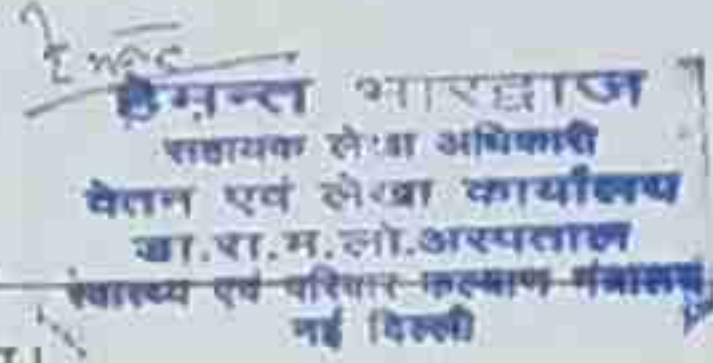 हेमन्त भारद्वाज
सहायक लेखा अधिकारी
वेतन एवं लेखा कार्यालय
डा.रा.म.लो.अस्पताल
स्वास्थ्य एवं परिवार कल्याण मंत्रालय
नई दिल्ली